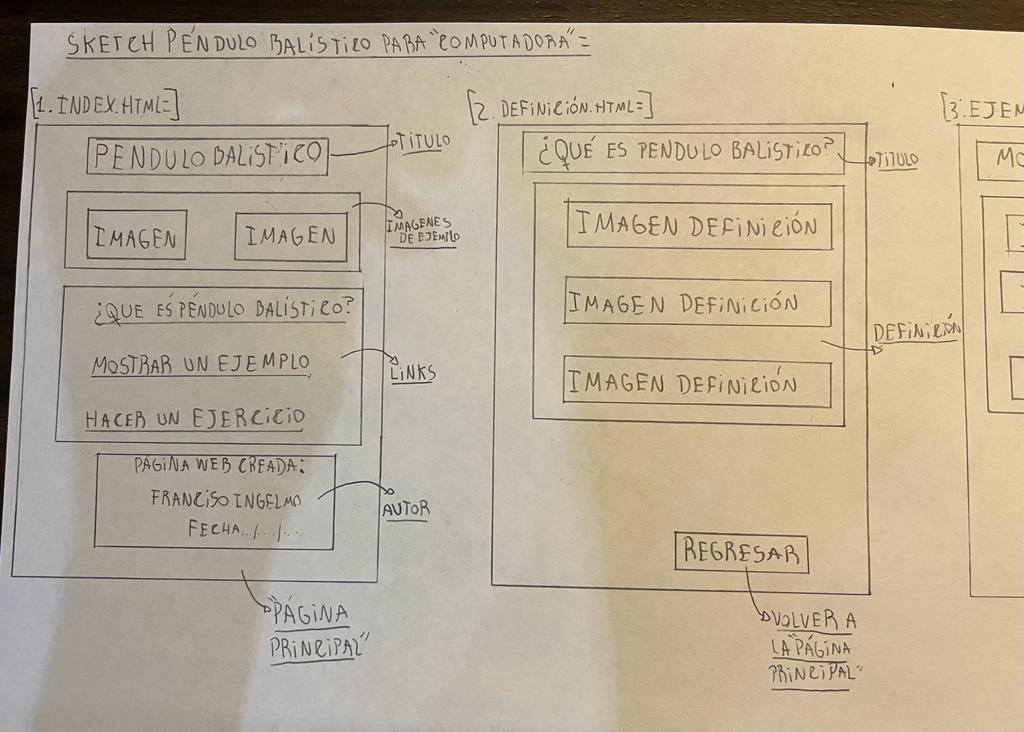 SKETCH PÉNDULO BALÍSTICO PARA "COMPUTADORA"=
[1. INDEX.HTML=]
PENDULO BALISTICO
TITULO
IMAGEN
IMAGEN
IMAGENES
DE EJEMPLO
¿QUE ES PÉNDULO BALÍSTICO?
MOSTRAR UN EJEMPLO
HACER UN EJERCICIO
LINKS
PÁGINA WEB CREADA:
FRANCISO INGELMO
FECHA.../.../...
AUTOR
"PÁGINA
PRINCIPAL"
[2. DEFINICIÓN.HTML=]
¿QUÉ ES PENDULO BALISTICO?
TITULO
IMAGEN DEFINICIÓN
IMAGEN DEFINICIÓN
IMAGEN DEFINICIÓN
DEFINICIÓN
REGRESAR
VOLVER A
LA "PÁGINA
PRINCIPAL"
[3. EJEM
MO